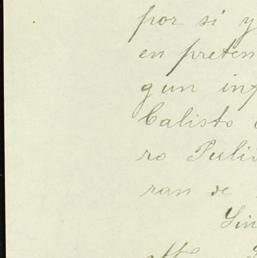 por si y
en preten
gun inf
Calisto
ro Puli
ran de
Sin